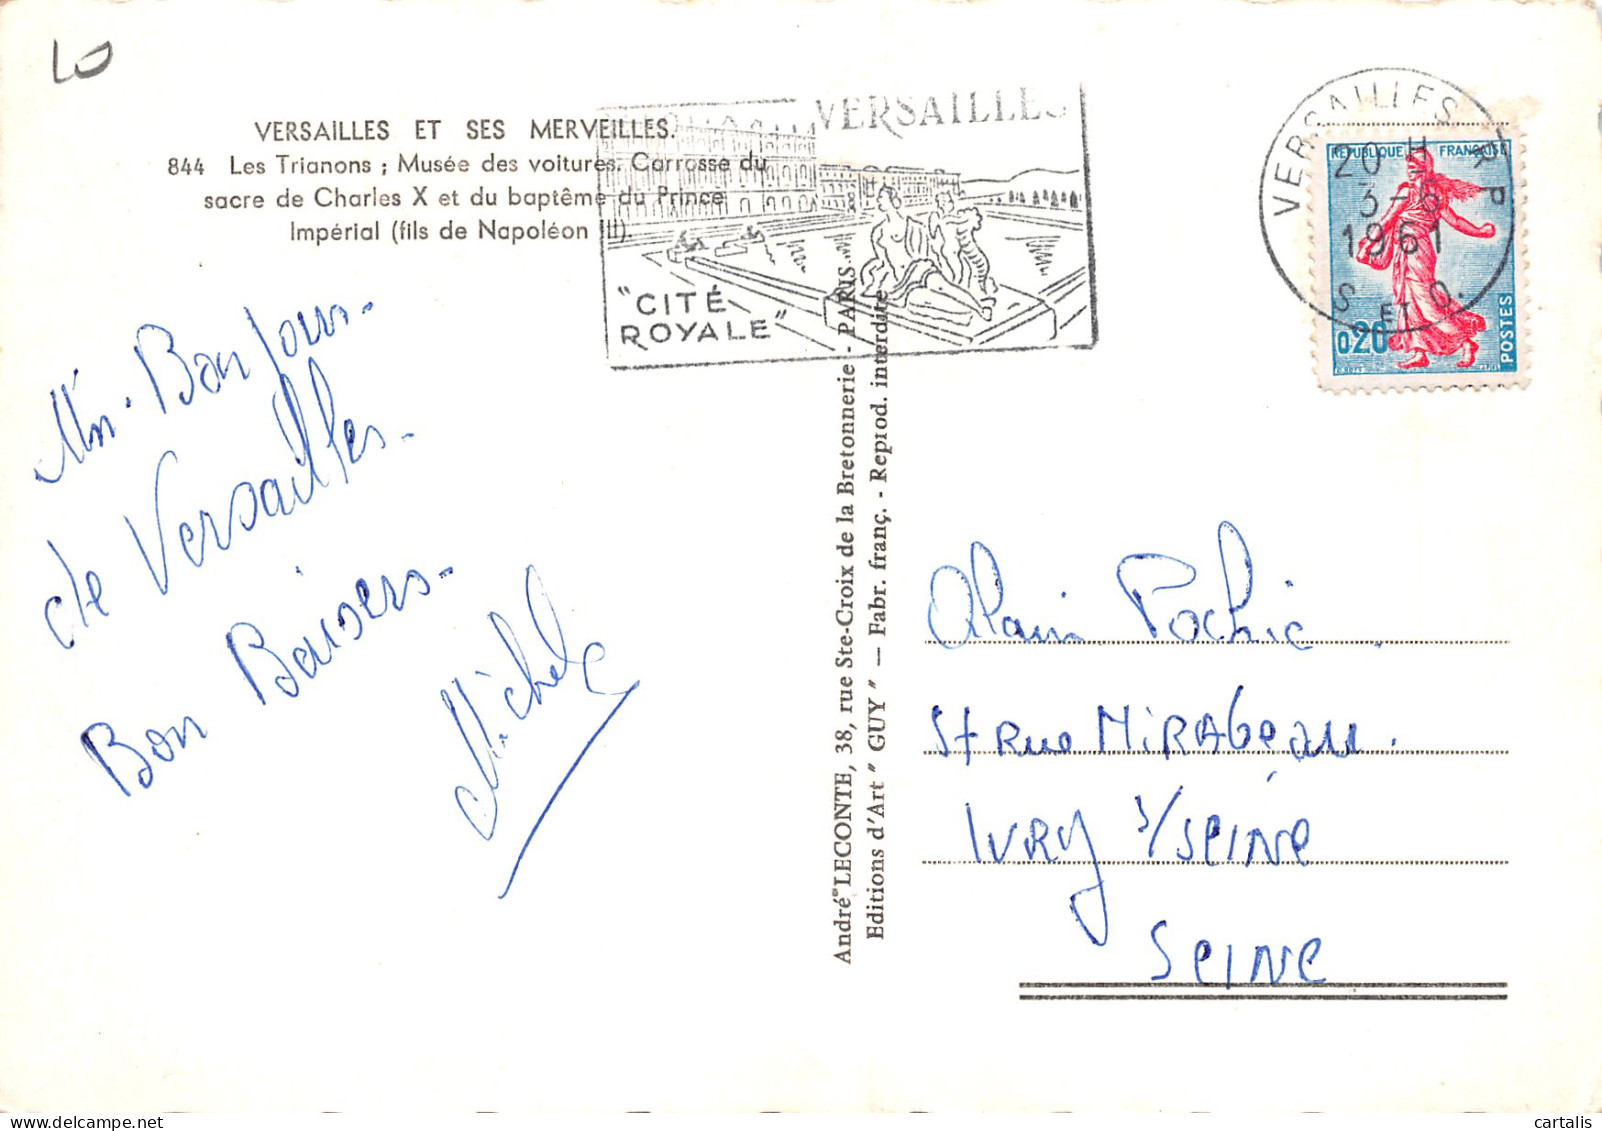 VERSAILLES ET SES MERVEILLES.
844 Les Trianons ; Musée des voitures. Carrosse du
sacre de Charles X et du baptême du Prince
Impérial (fils de Napoléon III)
VERSAILLES
"CITÉ
ROYALE"
VERSAILLES R P
20 H
3-6
1961
S. ET O.
REPUBLIQUE FRANÇAISE
0,20
POSTES
Un Bonjour
de Versailles
Bon Baisers
Michel
André LECONTE, 38, rue Ste-Croix de la Bretonnerie - PARIS
Editions d'Art "GUY" — Fabr. franç. - Reprod. interdite
Alain Pochic
Rue MiRAbeau.
IVRY s/seine
Seine
cartalis